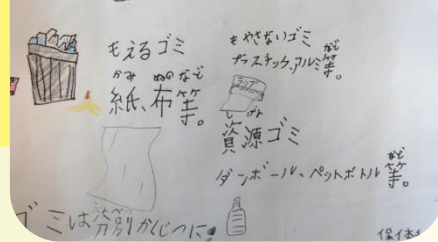 もえるゴミ
かみ ぬの など
紙、布等。
もやさないゴミ
など
プラスチック、アルミ等。
ラップ
しげん
資源ゴミ
など
ダンボール、ペットボトル等。
ゴミは分別かくじつに!